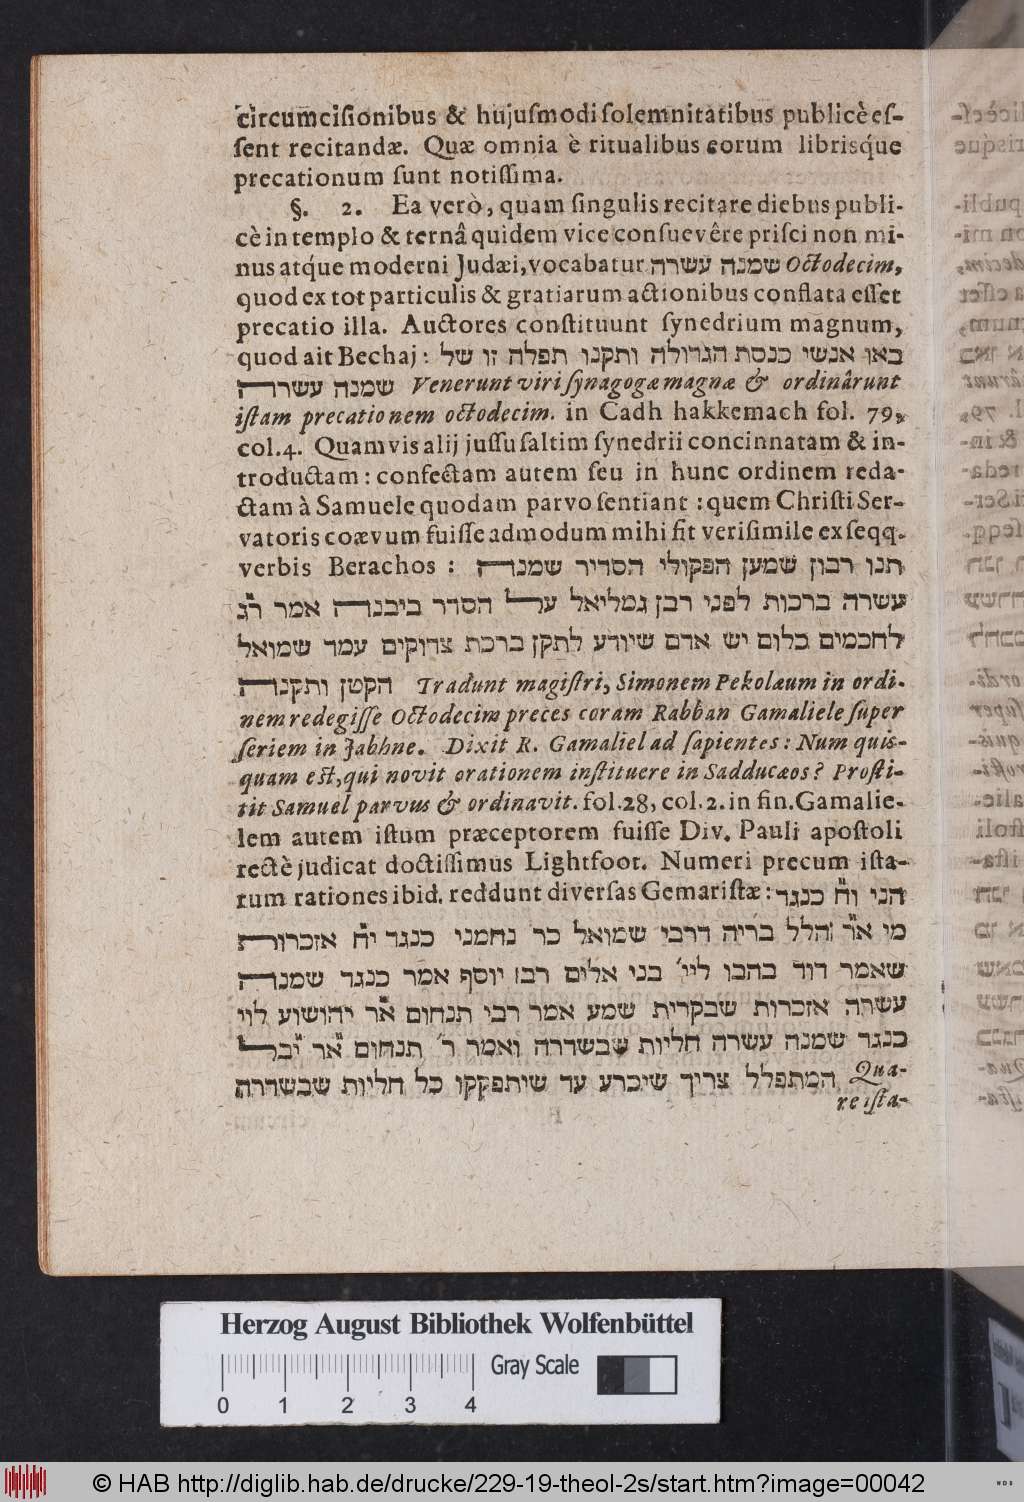 circumcisionibus & hujuſmodi ſolemnitatibus publicè eſ-
ſent recitandæ. Quæ omnia è ritualibus eorum librisq́ue
precationum ſunt notiſſima.
§. 2. Ea verò, quam ſingulis recitare diebus publi-
cè in templo & ternâ quidem vice conſuevêre priſci non mi-
nus atq́ue moderni Judæi, vocabatur שמנה עשרה Octodecim,
quod ex tot particulis & gratiarum actionibus conflata eſſet
precatio illa. Auctores conſtituunt ſynedrium magnum,
quod ait Bechaj: באו אנשי כנסת הגדולה ותקנו תפלה זו של
שמנה עשרה Venerunt viri ſynagogæ magnæ & ordinârunt
iſtam precationem octodecim. in Cadh hakkemach fol. 79,
col. 4. Quamvis alij juſſu ſaltim ſynedrii concinnatam & in-
troductam: confectam autem ſeu in hunc ordinem reda-
ctam à Samuele quodam parvo ſentiant: quem Chriſti Ser-
vatoris coævum fuiſſe admodum mihi fit veriſimile ex ſeqq.
verbis Berachos: תנו רבון שמען הפקולי הסדיר שמנה
עשרה ברכות לפני רבן גמליאל על הסדר ביבנה אמר ר״ג
לחכמים כלום יש אדם שיודע לתקן ברכת צדוקים עמד שמואל
הקטן ותקנה Tradunt magiſtri, Simonem Pekolæum in ordi-
nem redegiſſe Octodecim preces coram Rabban Gamaliele ſuper
ſeriem in Jabhne. Dixit R. Gamaliel ad ſapientes: Num quis-
quam eſt, qui novit orationem inſtituere in Sadducæos? Proſti-
tit Samuel parvus & ordinavit. fol. 28, col. 2. in fin. Gamalie-
lem autem iſtum præceptorem fuiſſe Div. Pauli apoſtoli
rectè judicat doctiſſimus Lightfoot. Numeri precum iſta-
rum rationes ibid. reddunt diverſas Gemariſtæ: הני י״ח כנגד
מי א״ר הלל בריה דרבי שמואל בר נחמני כנגד י״ח אזכרות
שאמר דוד בהבו ליי׳ בני אלים רבו יוסף אמר כנגד שמנה
עשרה אזכרות שבקרית שמע אמר רבי תנחום א״ר יהושוע לוי
כנגד שמנה עשרה חליות שבשדרה ואמר ר׳ תנחום א״ר יב״ל
המתפלל צריך שיכרע עד שיתפקקו כל חליות שבשדרה Qua-
re iſta-
Herzog August Bibliothek Wolfenbüttel
Gray Scale
0 1 2 3 4
© HAB http://diglib.hab.de/drucke/229-19-theol-2s/start.htm?image=00042